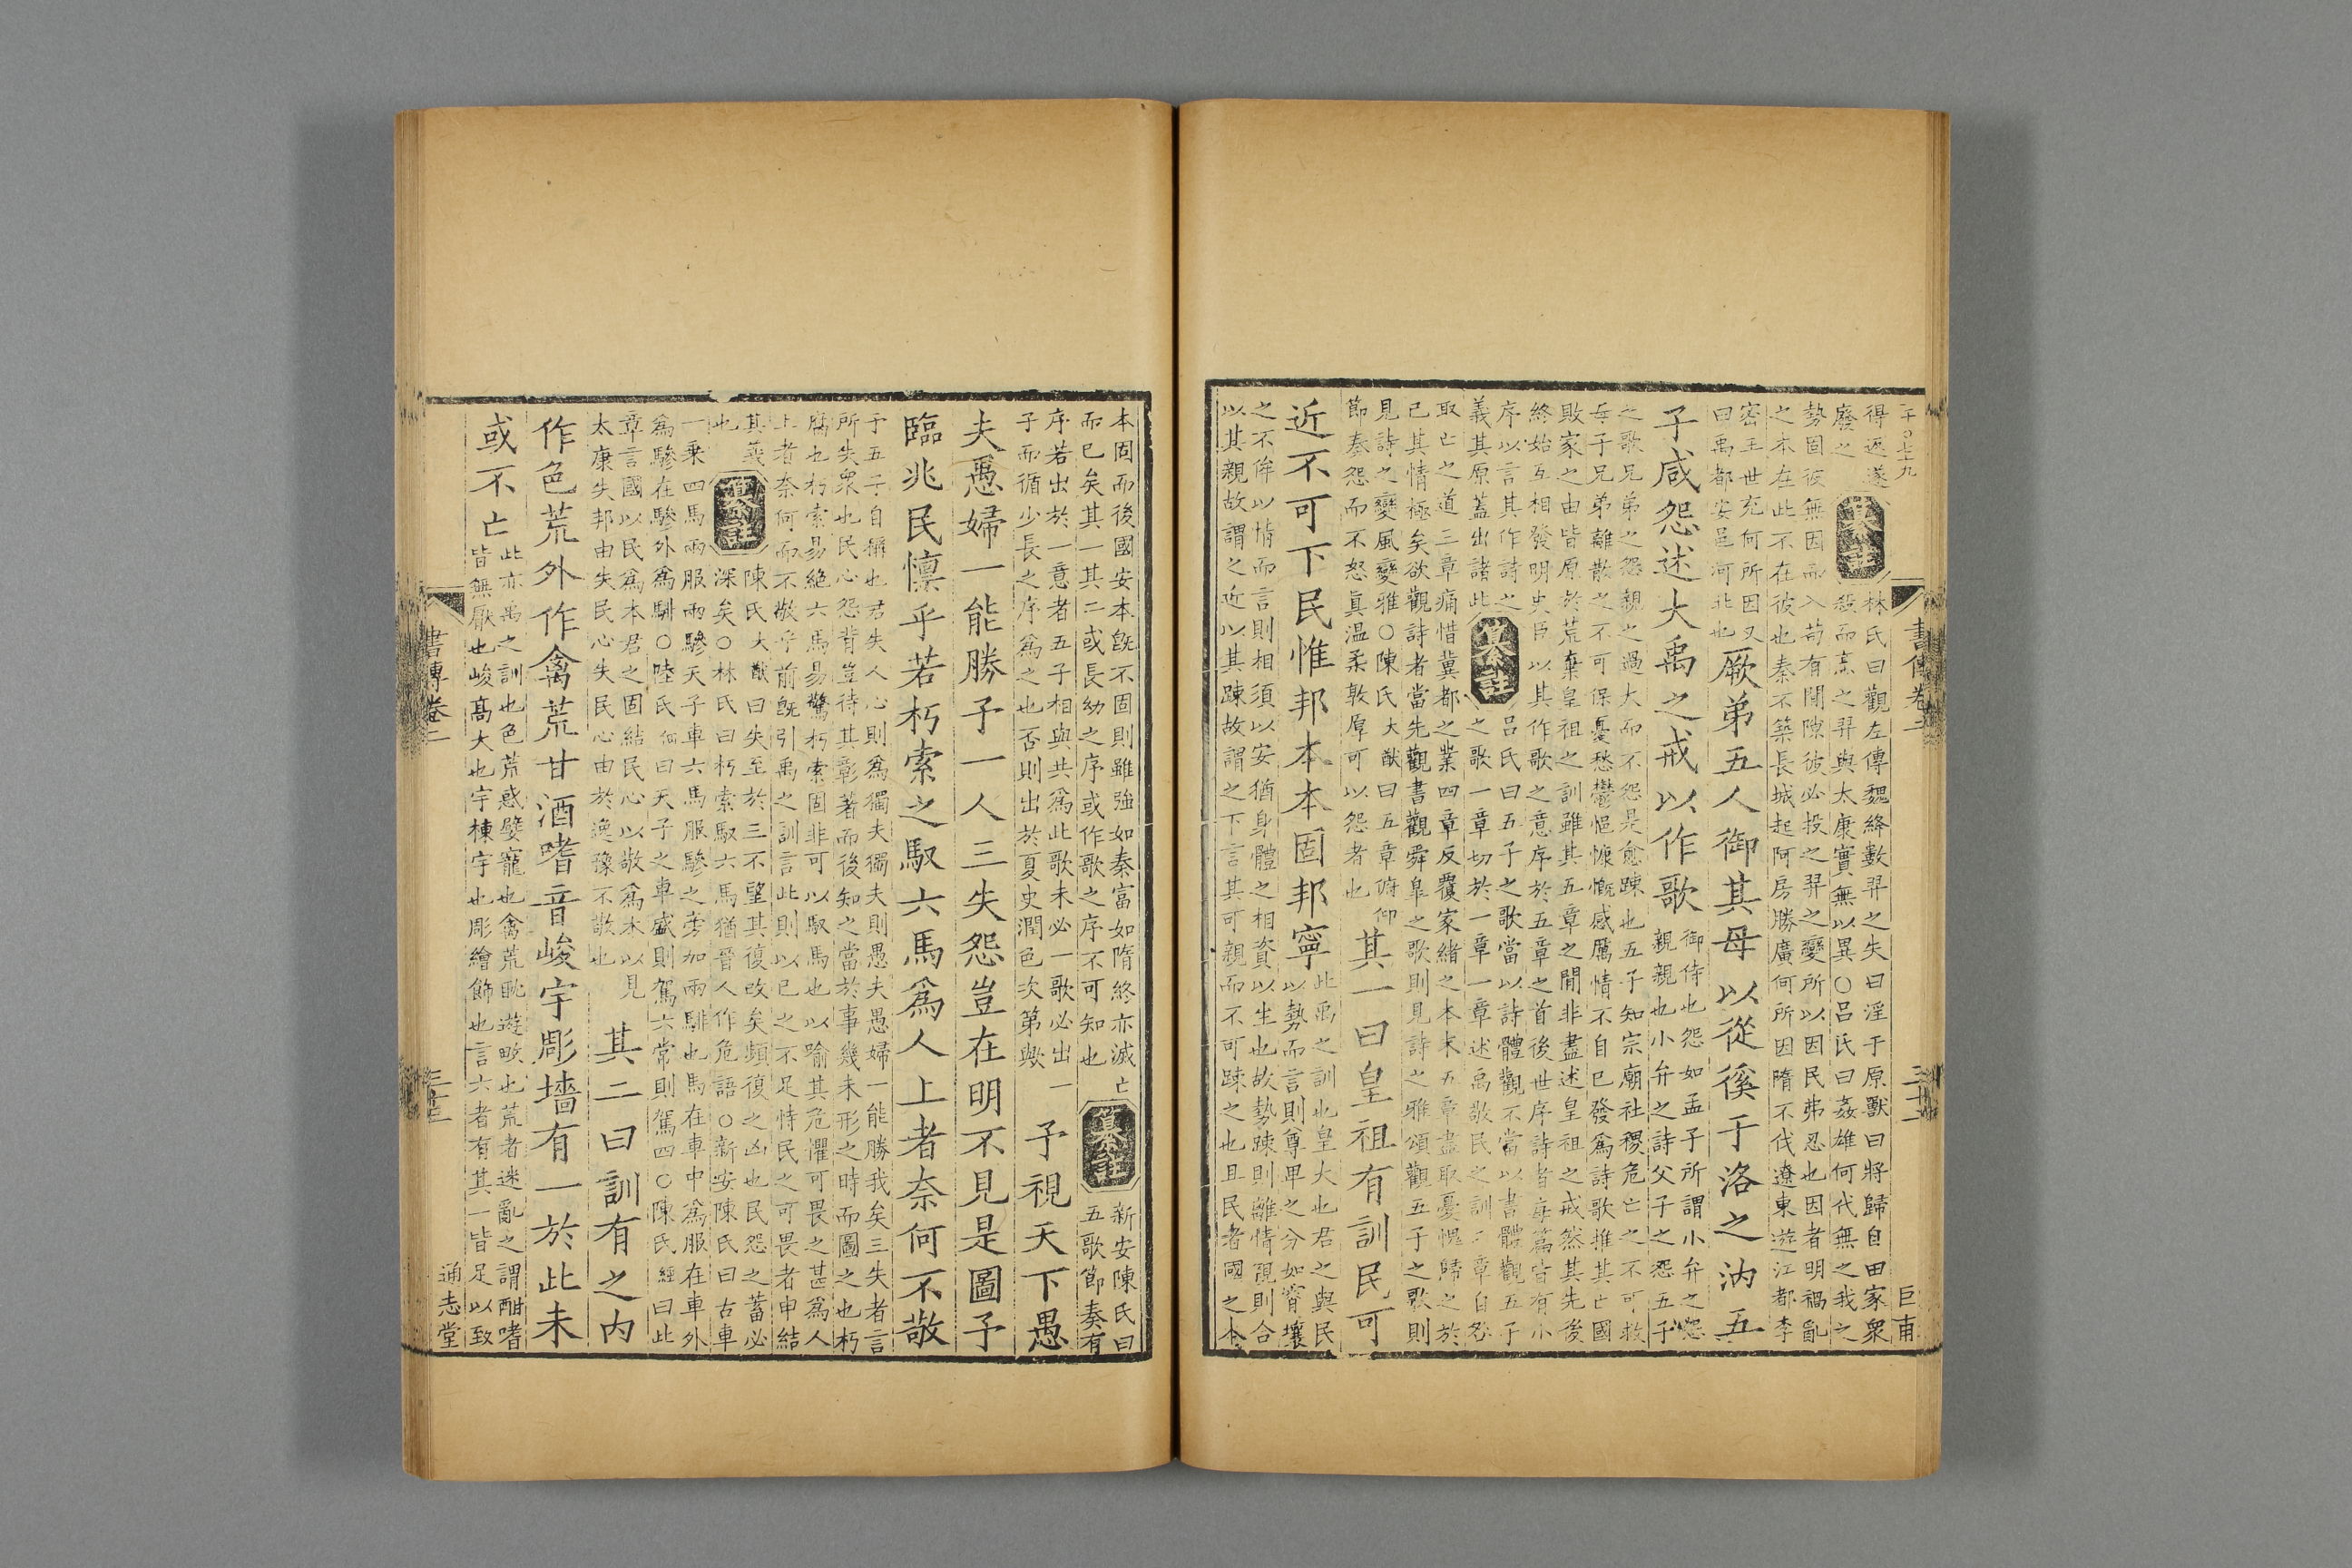 書傳卷二
三十二
巨甫
得返遂
廢之
纂註
林氏曰觀左傳魏絳數羿之失曰淫于原獸曰將歸自田家衆
殺而烹之羿與太康實無以異○呂氏曰姦雄何代無之我之
勢固彼無因而入苟有間隙彼必投之羿之變所以因民弗忍也因者明禍亂
之本在此不在彼也秦不築長城起阿房勝廣何所因隋不伐遼東遊江都李
密王世充何所因又
曰禹都安邑河北也
厥弟五人御其母以從徯于洛之汭五
子咸怨述大禹之戒以作歌
御侍也怨如孟子所謂小弁之怨
親親也小弁之詩父子之怨五子
之歌兄弟之怨親之過大而不怨是愈踈也五子知宗廟社稷危亡之不可救
母子兄弟離散之不可保憂愁鬱悒慷慨感厲情不自已發爲詩歌推其亡國
敗家之由皆原於荒棄皇祖之訓雖其五章之間非盡述皇祖之戒然其先後
終始互相發明史臣以其作歌之意序於五章之首後世序詩者每篇皆有小
序以言其作詩之
義其原蓋出諸此
纂註
呂氏曰五子之歌當以詩體觀不當以書體觀五子
之歌一章切於一章一章述禹敬民之訓二章自怨
取亡之道三章痛惜冀都之業四章反覆家緒之本末五章盡取憂愧歸之於
己其情極矣欲觀詩者當先觀書觀舜皐之歌則見詩之雅頌觀五子之歌則
見詩之變風變雅○陳氏大猷曰五章俯仰
節奏怨而不怒眞溫柔敦厚可以怨者也
其一曰皇祖有訓民可
近不可下民惟邦本本固邦寧
此禹之訓也皇大也君之與民
以勢而言則尊卑之分如霄壤
之不侔以情而言則相須以安猶身體之相資以生也故勢踈則離情親則合
以其親故謂之近以其踈故謂之下言其可親而不可踈之也且民者國之本
本固而後國安本旣不固則雖強如秦富如隋終亦滅亡
而已矣其一其二或長幼之序或作歌之序不可知也
纂註
新安陳氏曰
五歌節奏有
序若出於一意者五子相與共爲此歌未必一歌必出一
子而循少長之序爲之也否則出於夏史潤色次第歟
予視天下愚
夫愚婦一能勝予一人三失怨豈在明不見是圖予
臨兆民懍乎若朽索之馭六馬爲人上者奈何不敬
予五子自稱也君失人心則爲獨夫獨夫則愚夫愚婦一能勝我矣三失者言
所失衆也民心怨背豈待其彰著而後知之當於事幾未形之時而圖之也朽
腐也朽索易絕六馬易驚朽索固非可以馭馬也以喻其危懼可畏之甚爲人
上者奈何而不敬乎前旣引禹之訓言此則以己之不足恃民之可畏者申結
其義
也
纂註
陳氏大猷曰失至於三不望其復改矣頻復之凶也民怨之蓄必
深矣○林氏曰朽索馭六馬猶晉人作危語○新安陳氏曰古車
一乗四馬兩服兩驂天子車六馬服驂之旁加兩騑也馬在車中爲服在車外
爲驂在驂外爲騑○陸氏佃曰天子之車盛則駕六常則駕四○陳氏經曰此
章言國以民爲本君之固結民心以敬爲本以見
太康失邦由失民心失民心由於逸豫不敬也
其二曰訓有之內
作色荒外作禽荒甘酒嗜音峻宇彫墻有一於此未
或不亡
此亦禹之訓也色荒惑嬖寵也禽荒耽遊畋也荒者迷亂之謂酣嗜
皆無厭也峻高大也宇棟宇也彫繪飾也言六者有其一皆足以致
書傳卷二
通志堂